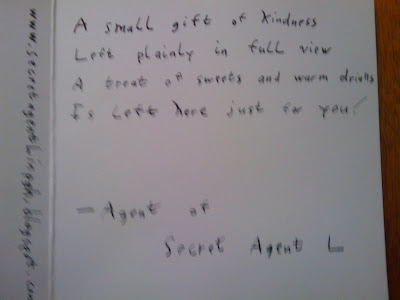 A small gift of kindness
Left plainly in full view
A treat of sweets and warm drinks
Is Left here just for you!
— Agent of
Secret Agent L